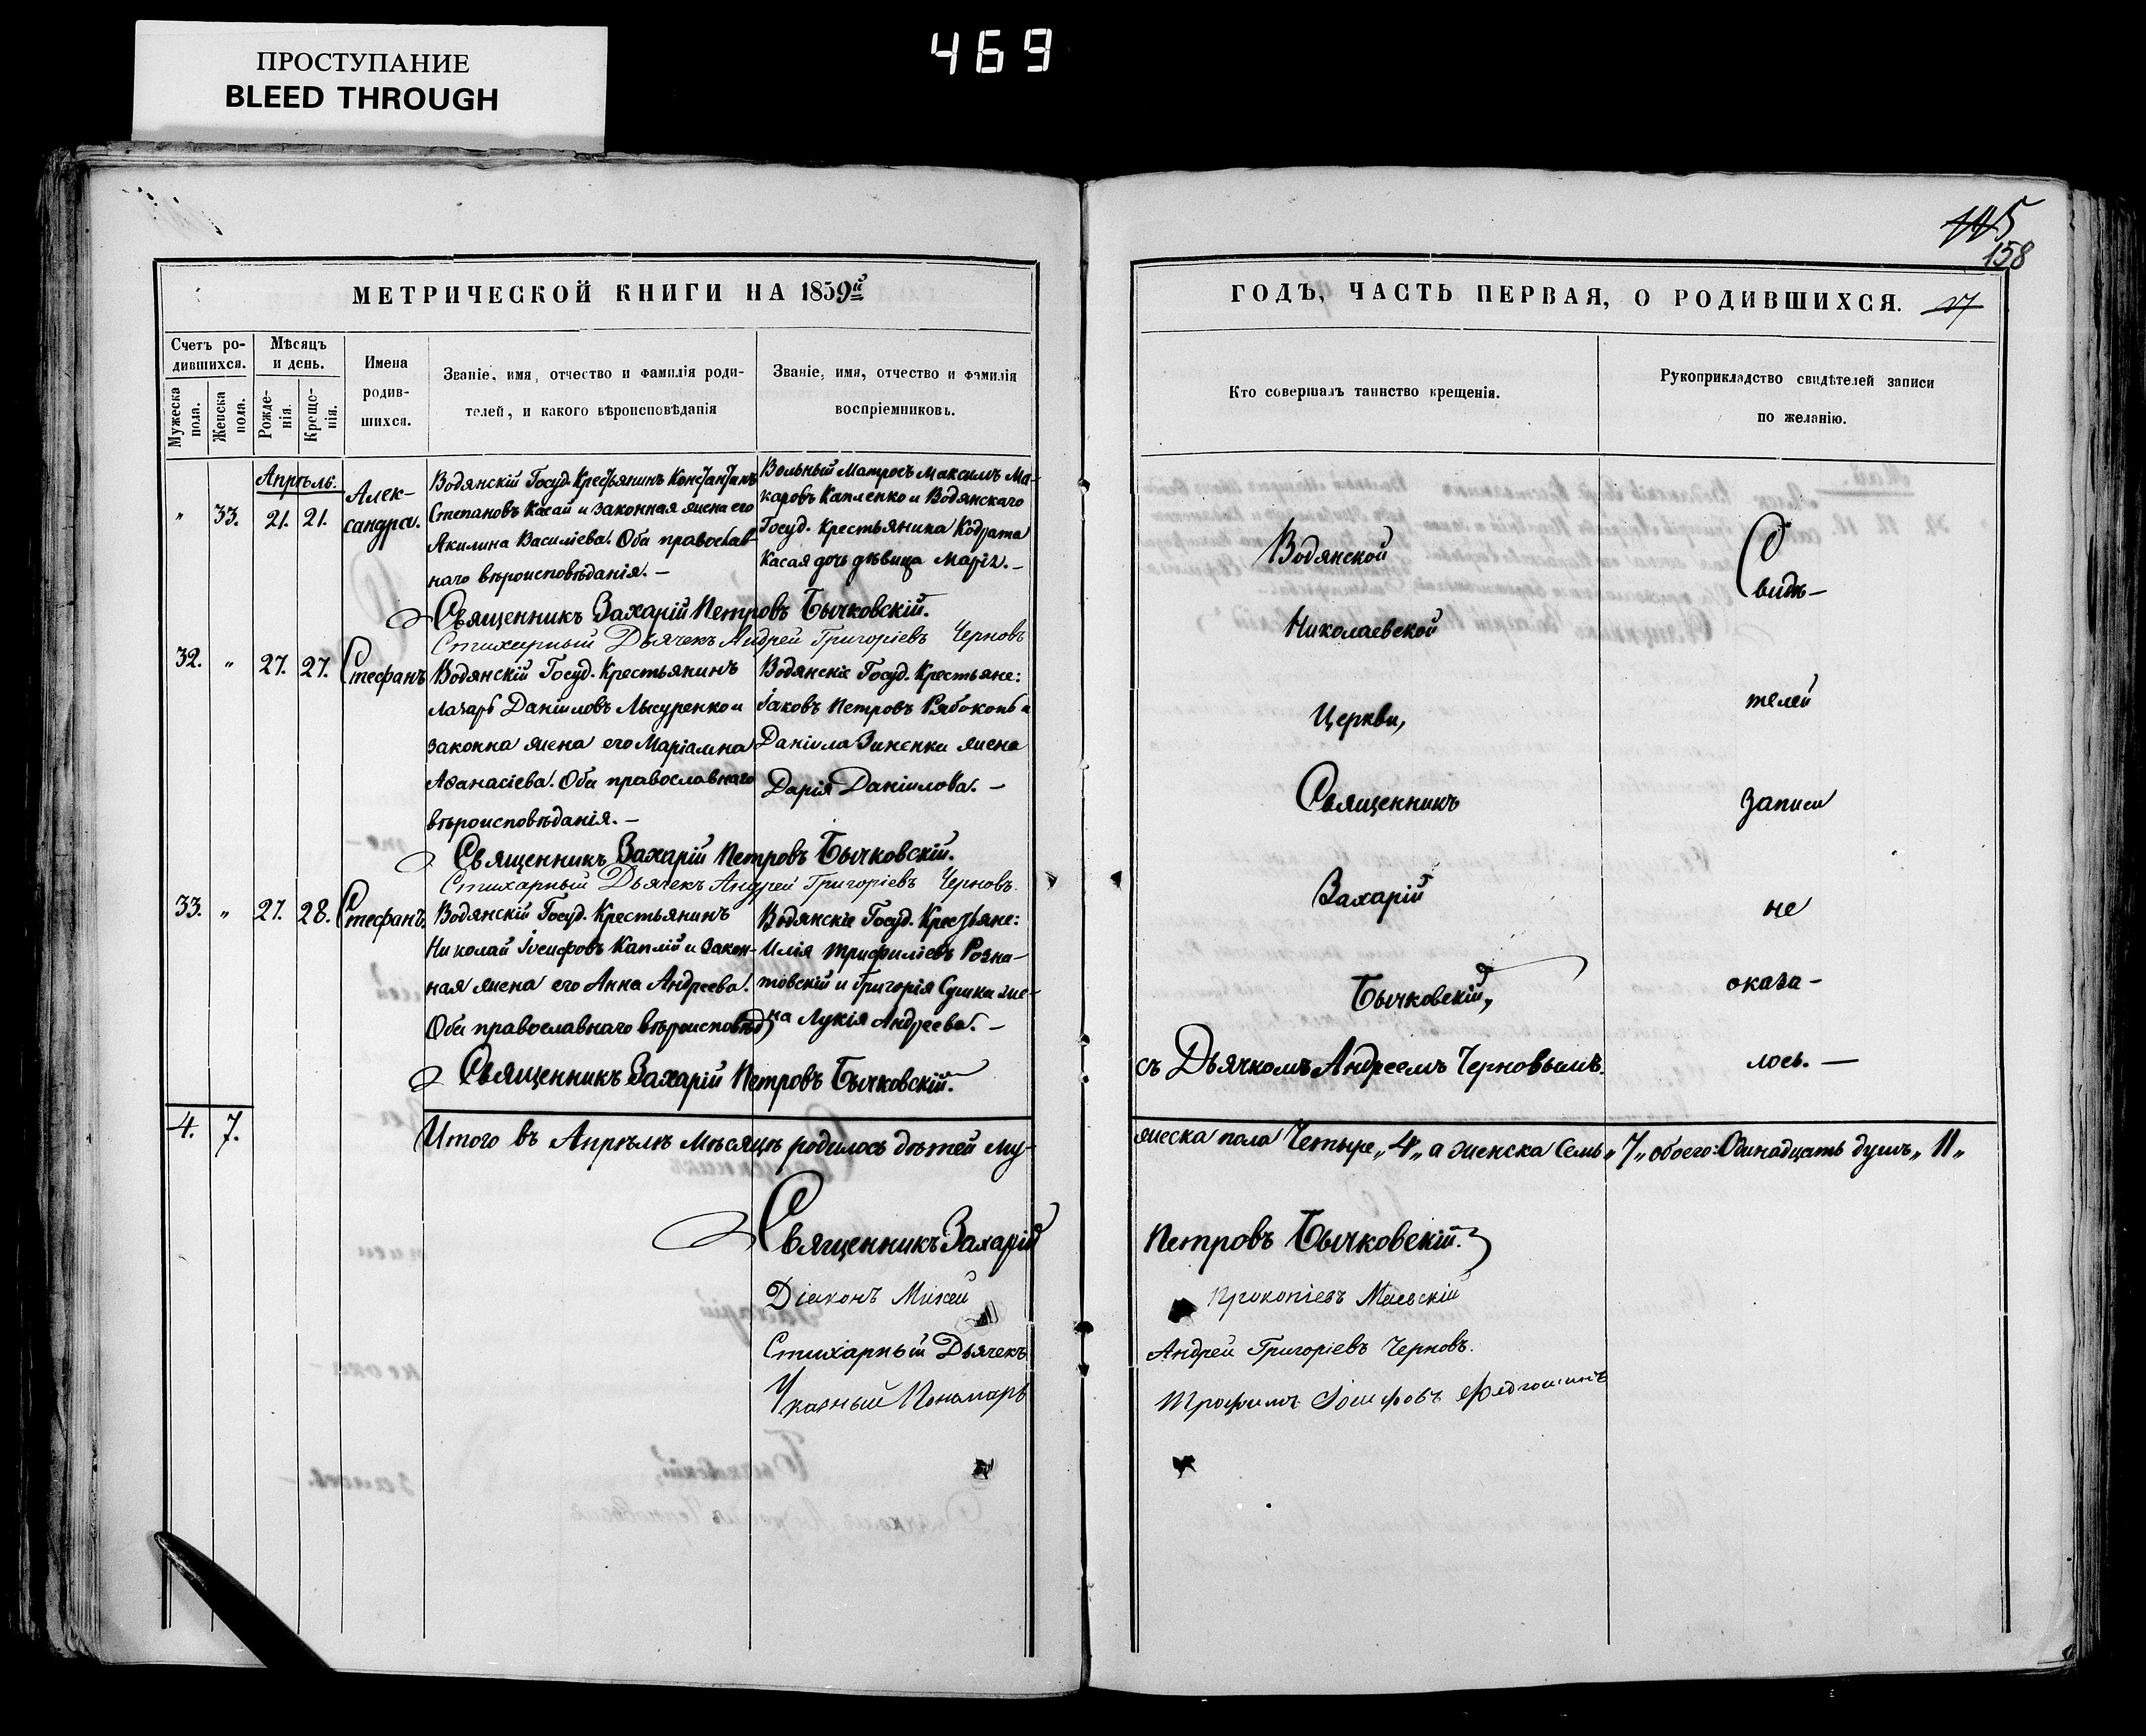 ПРОСТУПАНИЕ
BLEED THROUGH
469
115
158
МЕТРИЧЕСКОЙ КНИГИ НА 1859й
ГОДЪ, ЧАСТЬ ПЕРВАЯ, О РОДИВШИХСЯ.
Счетъ ро-
дившихся.
Мужеска пола.
Женска пола.
Мѣсяцъ
и день.
Рожде-
нія.
Креще-
нія.
Имена
родив-
шихся.
Званіе, имя, отчество и фамилія роди-
телей, и какого вѣроисповѣданія
Званіе, имя, отчество и фамилія
воспріемниковъ.
Кто совершалъ таинство крещенія.
Рукоприкладство свидѣтелей записи
по желанію.
Апрѣль.
" 33. 21. 21.
Алек-
сандра.
Водянскій Госуд. Крестьянинъ Константинъ
Степановъ Касай и законная жена его
Акилина Василіева. Оба православ-
наго вѣроисповѣданія. –
Вольный Матросъ Максимъ Ма-
каровъ Капленко и Водянскаго
Госуд. Крестьянина Кодрата
Касая дочь дѣвица Марія. –
Священникъ Захарій Петровъ Бычковскій.
Стихарный Дьячекъ Андрей Григоріевъ Черновъ
32. " 27. 27. Стефанъ
Водянскій Госуд. Крестьянинъ
Лазарь Даніиловъ Лысуренко и
законна жена его Маріамна
Аѳанасіева. Оба православнаго
вѣроисповѣданія. –
Водянскіе Госуд. Крестьяне:
Іаковъ Петровъ Рябоконь и
Даніила Зиненки жена
Дарія Даніилова. –
Священникъ Захарій Петровъ Бычковскій.
Стихарный Дьячекъ Андрей Григоріевъ Черновъ.
33. " 27. 28. Стефанъ.
Водянскій Госуд. Крестьянинъ
Николай Іосифовъ Каплій и закон-
ная жена его Анна Андреева.
Оба православнаго вѣроисповѣд
Водянскіе Госуд. Крестьяне:
Илія Трифиліевъ Розна-
товскій и Григорія Сушка же-
на Лукія Андреева. –
Священникъ Захарій Петровъ Бычковскій.
Водянской
Николаевской
Церкви,
Священникъ
Захарій
Бычковскій,
съ Дьячкомъ Андреемъ Черновымъ.
Свидѣ-
телей
записи
не
оказа-
лось. –
4. 7. Итого въ Апрѣлѣ мѣсяцѣ родилось дѣтей му-
жеска пола Четыре „4„ а женска Семь „7„ обоего: Одинадцать душъ „11„
Священникъ Захарій
Петровъ Бычковскій.
Діаконъ Михей
Прокопіевъ Маевскій
Стихарный Дьячекъ
Андрей Григоріевъ Черновъ.
Указный Пономарь
Трофимъ Іосифовъ